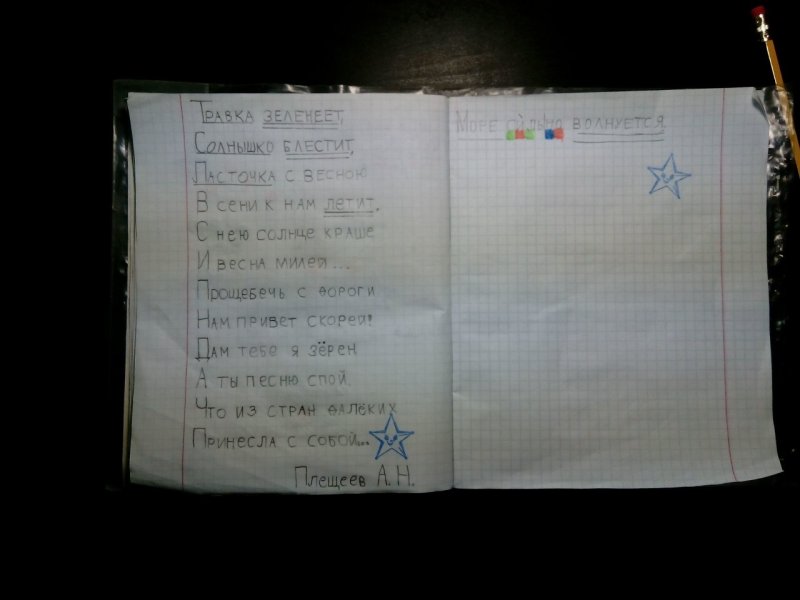 Травка зеленеет,
Солнышко блестит,
Ласточка с весною
В сени к нам летит.
С нею солнце краше
И весна милей...
Прощебечь с дороги
Нам привет скорей!
Дам тебе я зёрен
А ты песню спой,
Что из стран далёких
Принесла с собой...
Плещеев А. Н.
Море сильно волнуется